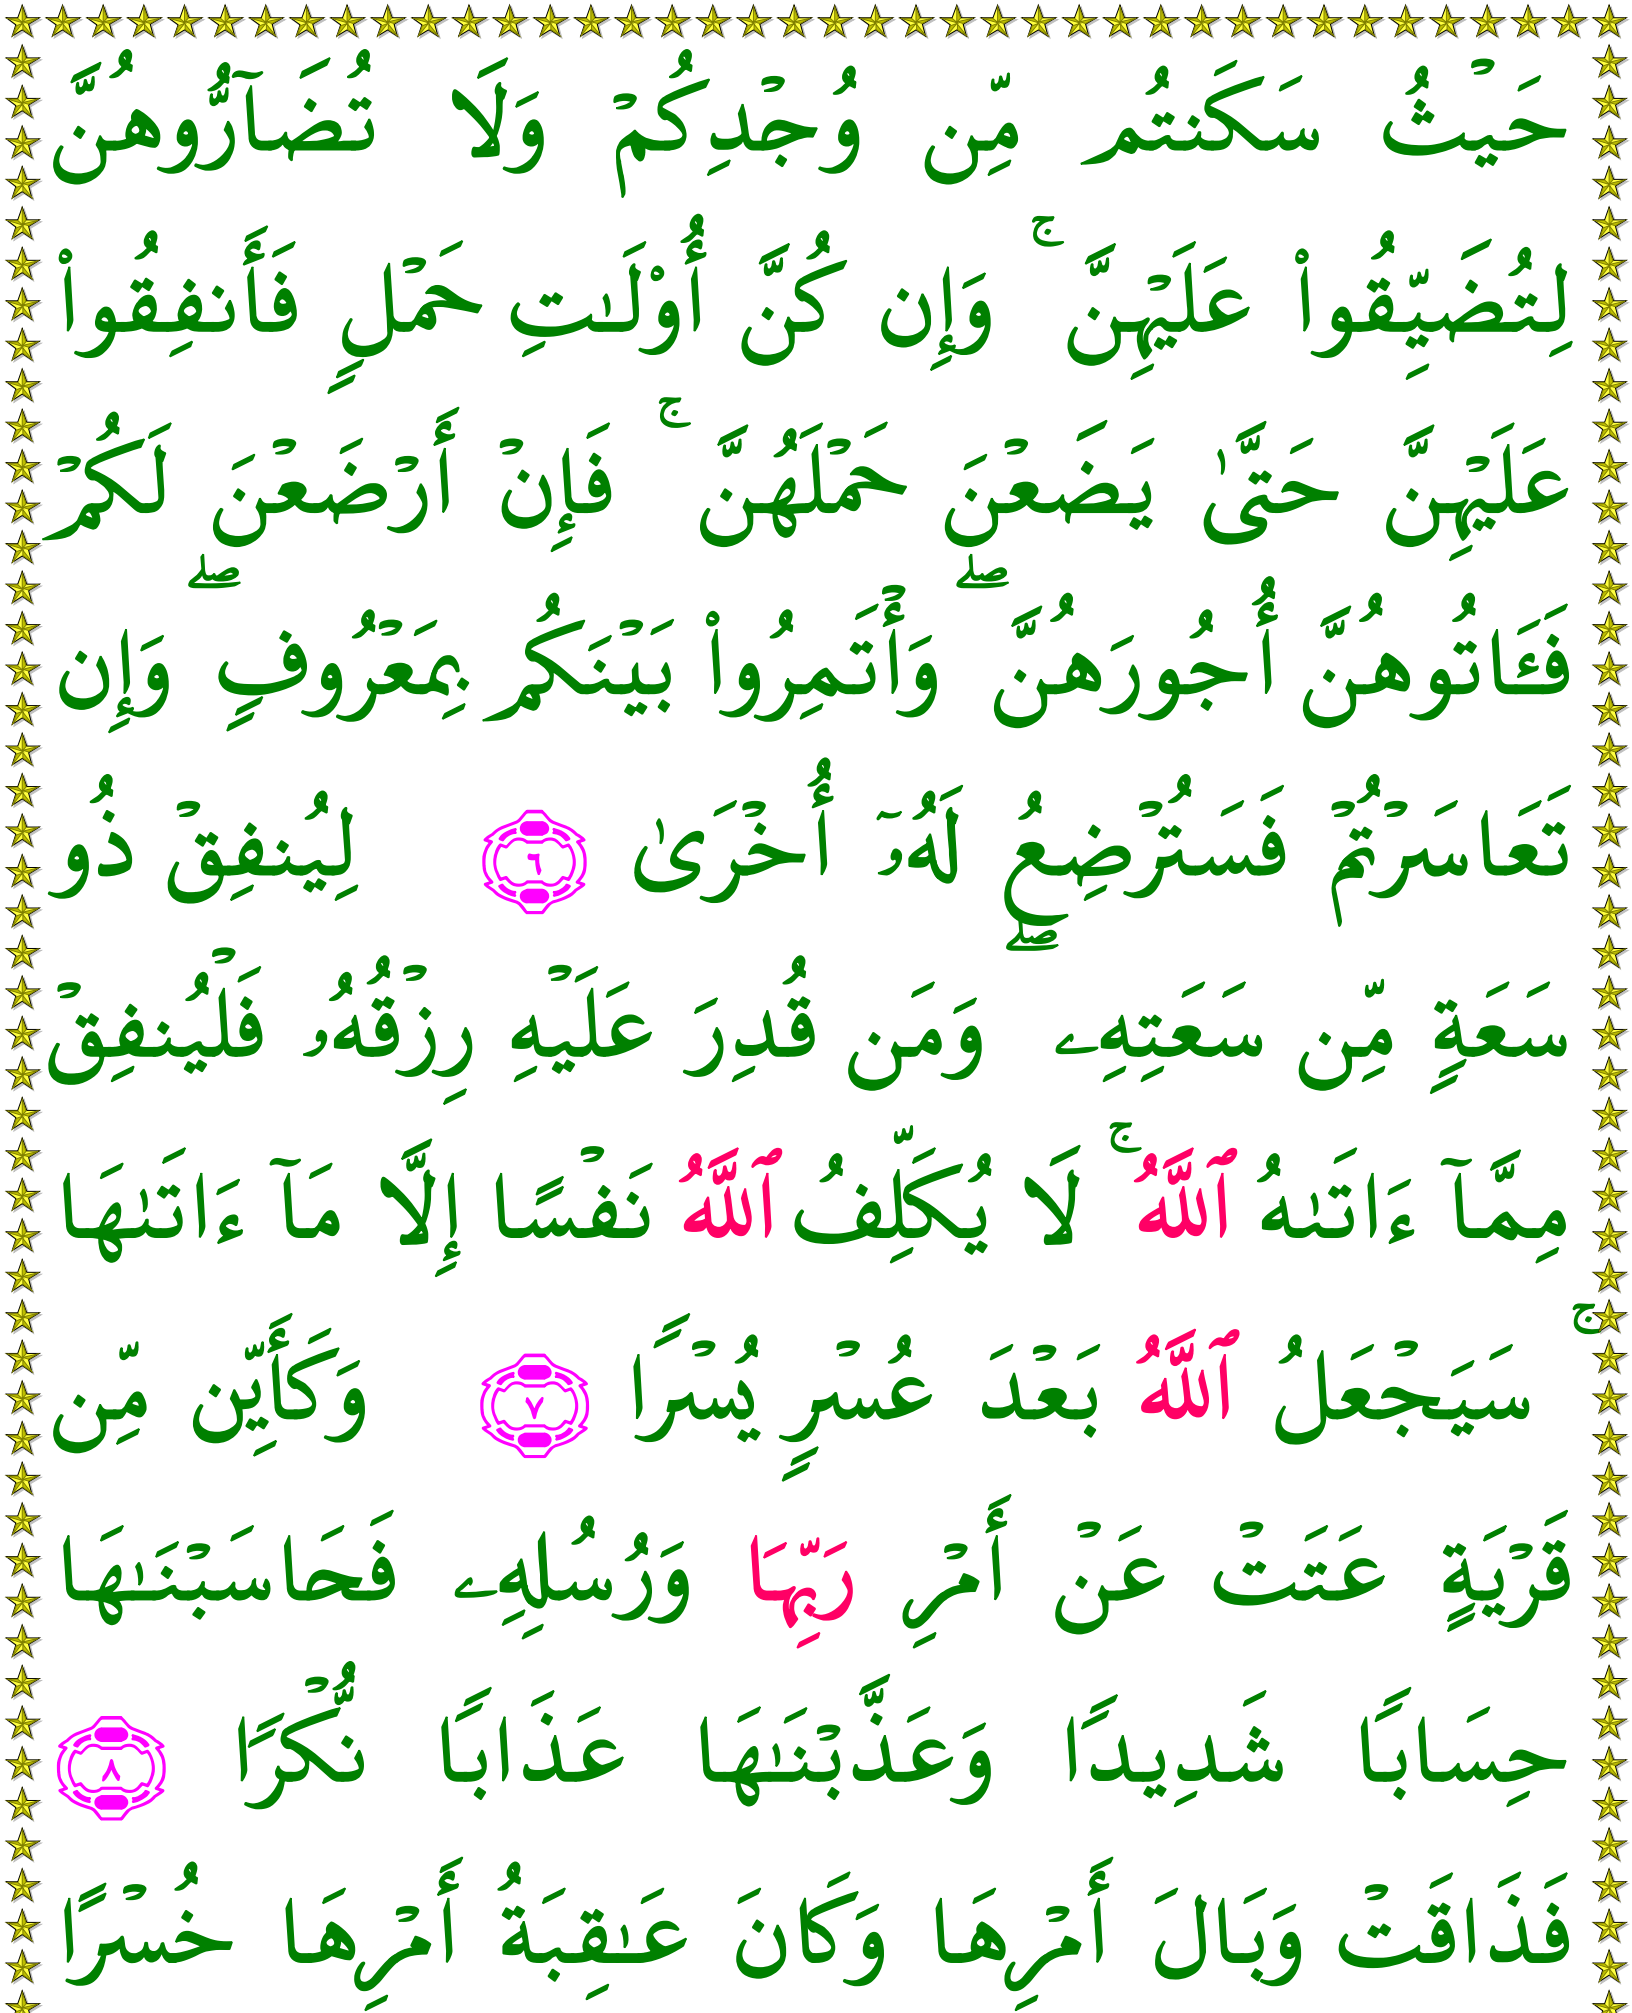 حَيْثُ سَكَنتُم مِّن وُجْدِكُمْ وَلَا تُضَآرُّوهُنَّ
لِتُضَيِّقُوا۟ عَلَيْهِنَّ ۚ وَإِن كُنَّ أُو۟لَـٰتِ حَمْلٍ فَأَنفِقُوا۟
عَلَيْهِنَّ حَتَّىٰ يَضَعْنَ حَمْلَهُنَّ ۚ فَإِنْ أَرْضَعْنَ لَكُمْ
فَـَٔاتُوهُنَّ أُجُورَهُنَّ ۖ وَأْتَمِرُوا۟ بَيْنَكُم بِمَعْرُوفٍ ۖ وَإِن
تَعَاسَرْتُمْ فَسَتُرْضِعُ لَهُۥٓ أُخْرَىٰ ٦ لِيُنفِقْ ذُو
سَعَةٍ مِّن سَعَتِهِۦ ۖ وَمَن قُدِرَ عَلَيْهِ رِزْقُهُۥ فَلْيُنفِقْ
مِمَّآ ءَاتَىٰهُ ٱللَّهُ ۚ لَا يُكَلِّفُ ٱللَّهُ نَفْسًا إِلَّا مَآ ءَاتَىٰهَا
ۚ سَيَجْعَلُ ٱللَّهُ بَعْدَ عُسْرٍ يُسْرًا ٧ وَكَأَيِّن مِّن
قَرْيَةٍ عَتَتْ عَنْ أَمْرِ رَبِّهَا وَرُسُلِهِۦ فَحَاسَبْنَـٰهَا
حِسَابًا شَدِيدًا وَعَذَّبْنَـٰهَا عَذَابًا نُّكْرًا ٨
فَذَاقَتْ وَبَالَ أَمْرِهَا وَكَانَ عَـٰقِبَةُ أَمْرِهَا خُسْرًا